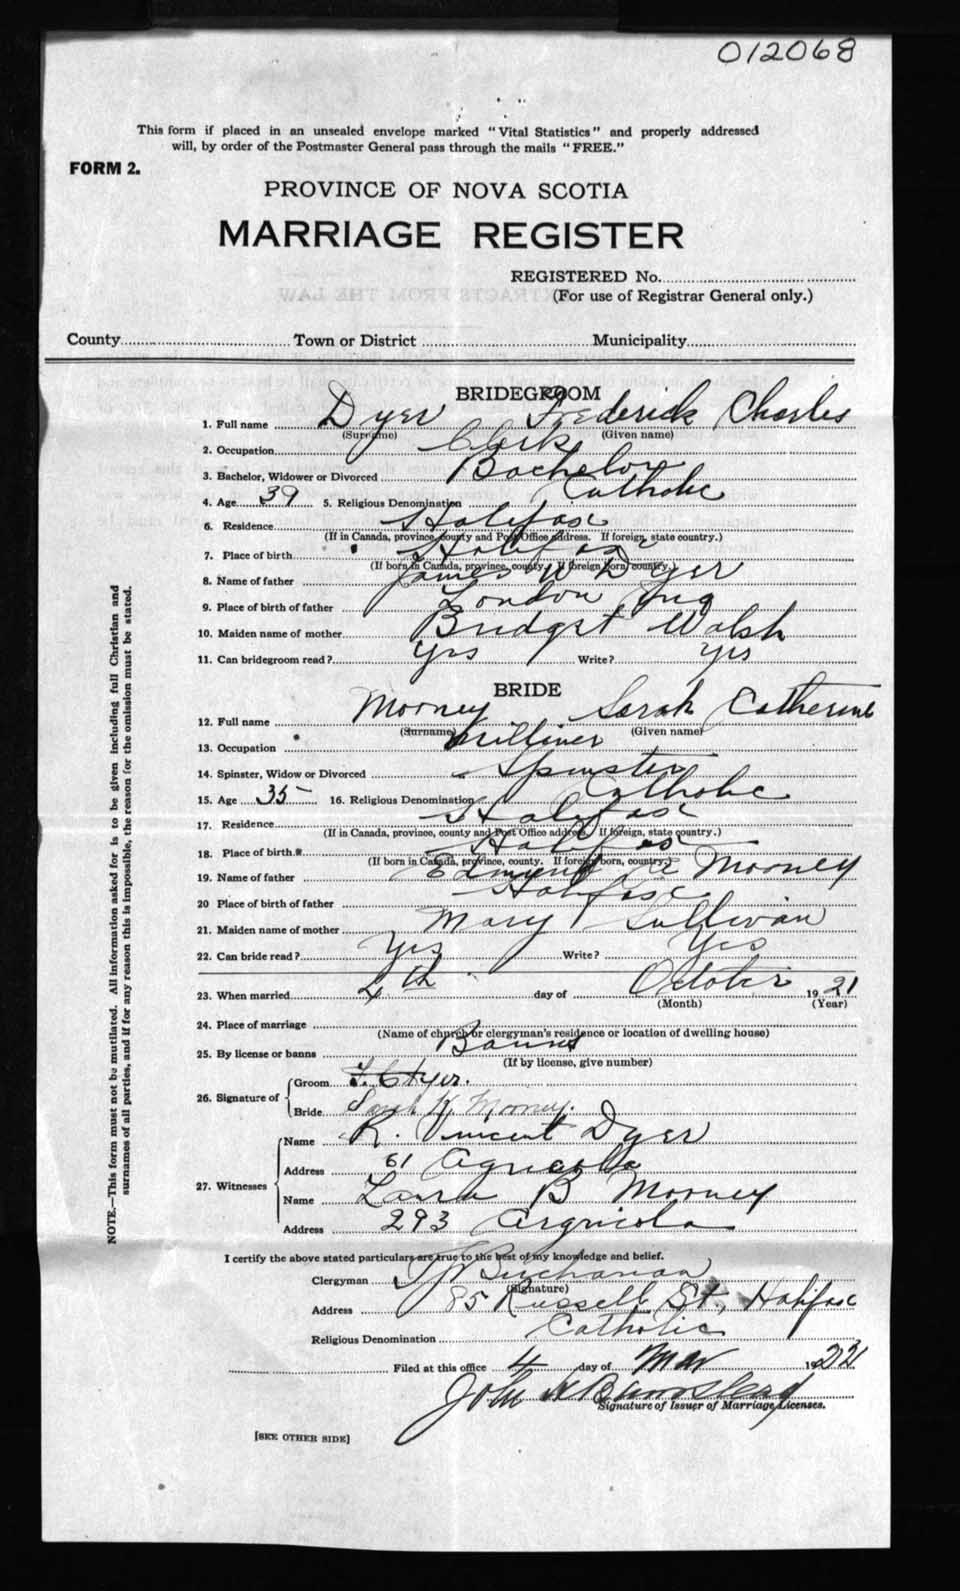 012068
This form if placed in an unsealed envelope marked "Vital Statistics" and properly addressed
will, by order of the Postmaster General pass through the mails "FREE."
FORM 2.
PROVINCE OF NOVA SCOTIA
MARRIAGE REGISTER
REGISTERED No.
(For use of Registrar General only.)
County Town or District Municipality
BRIDEGROOM
1. Full name Dyer Frederick Charles
(Surname) (Given name)
2. Occupation Clerk
3. Bachelor, Widower or Divorced Bachelor
4. Age 39 5. Religious Denomination Catholic
6. Residence Halifax
(If in Canada, province, county and Post Office address. If foreign, state country.)
7. Place of birth Halifax
(If born in Canada, province, county. If foreign born, country.)
8. Name of father James W Dyer
9. Place of birth of father London Eng
10. Maiden name of mother Bridget Walsh
11. Can bridegroom read? Yes Write? Yes
BRIDE
12. Full name Mooney Sarah Catherine
(Surname) (Given name)
13. Occupation Milliner
14. Spinster, Widow or Divorced Spinster
15. Age 35 16. Religious Denomination Catholic
17. Residence Halifax
(If in Canada, province, county and Post Office address. If foreign, state country.)
18. Place of birth Halifax
(If born in Canada, province, county. If foreign born, country.)
19. Name of father Edmund Mooney
20 Place of birth of father Halifax
21. Maiden name of mother Mary Sullivan
22. Can bride read? Yes Write? Yes
23. When married 4th day of October 1921
(Month) (Year)
24. Place of marriage
(Name of church or clergyman's residence or location of dwelling house)
25. By license or banns Banns
(If by license, give number)
26. Signature of Groom F. C. Dyer.
Bride Sarah K. Mooney.
27. Witnesses Name R. Vincent Dyer
Address 61 Agricola
Name Laura B Mooney
Address 293 Argricola
I certify the above stated particulars are true to the best of my knowledge and belief.
Clergyman Buchanan
(Signature)
Address 85 Russell St., Halifax
Religious Denomination Catholic
Filed at this office 4 day of Mar 1922
John Barnstead
Signature of Issuer of Marriage Licenses.
[SEE OTHER SIDE]
NOTE.—This form must not be mutilated. All information asked for is to be given including full Christian and
surnames of all parties, and if for any reason this is impossible, the reason for the omission must be stated.